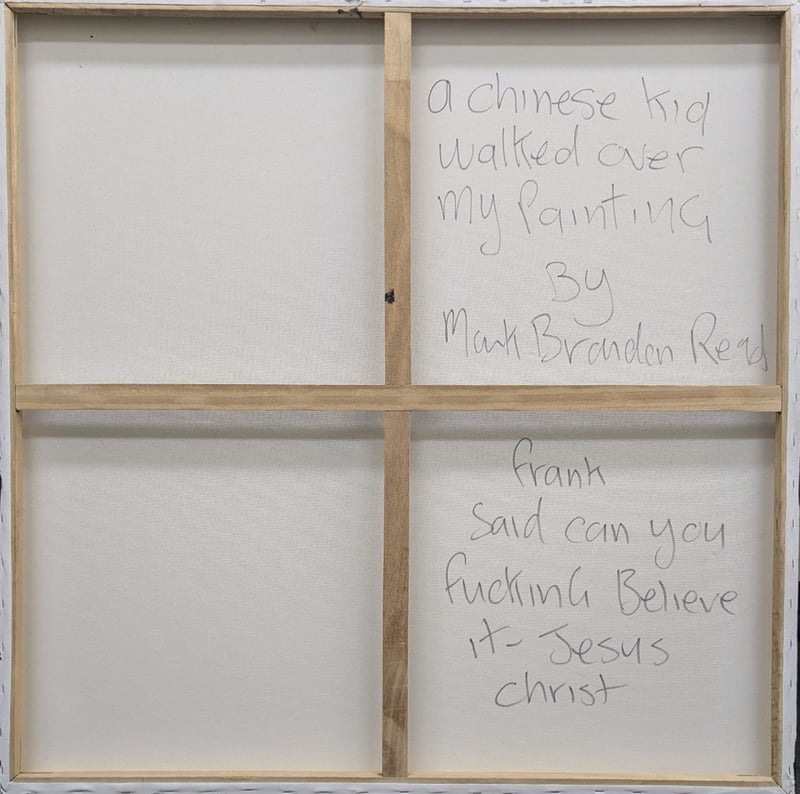 a chinese kid
walked over
my Painting
By
Mark Brandon Read
frank
said can you
fucking Believe
it- Jesus
christ